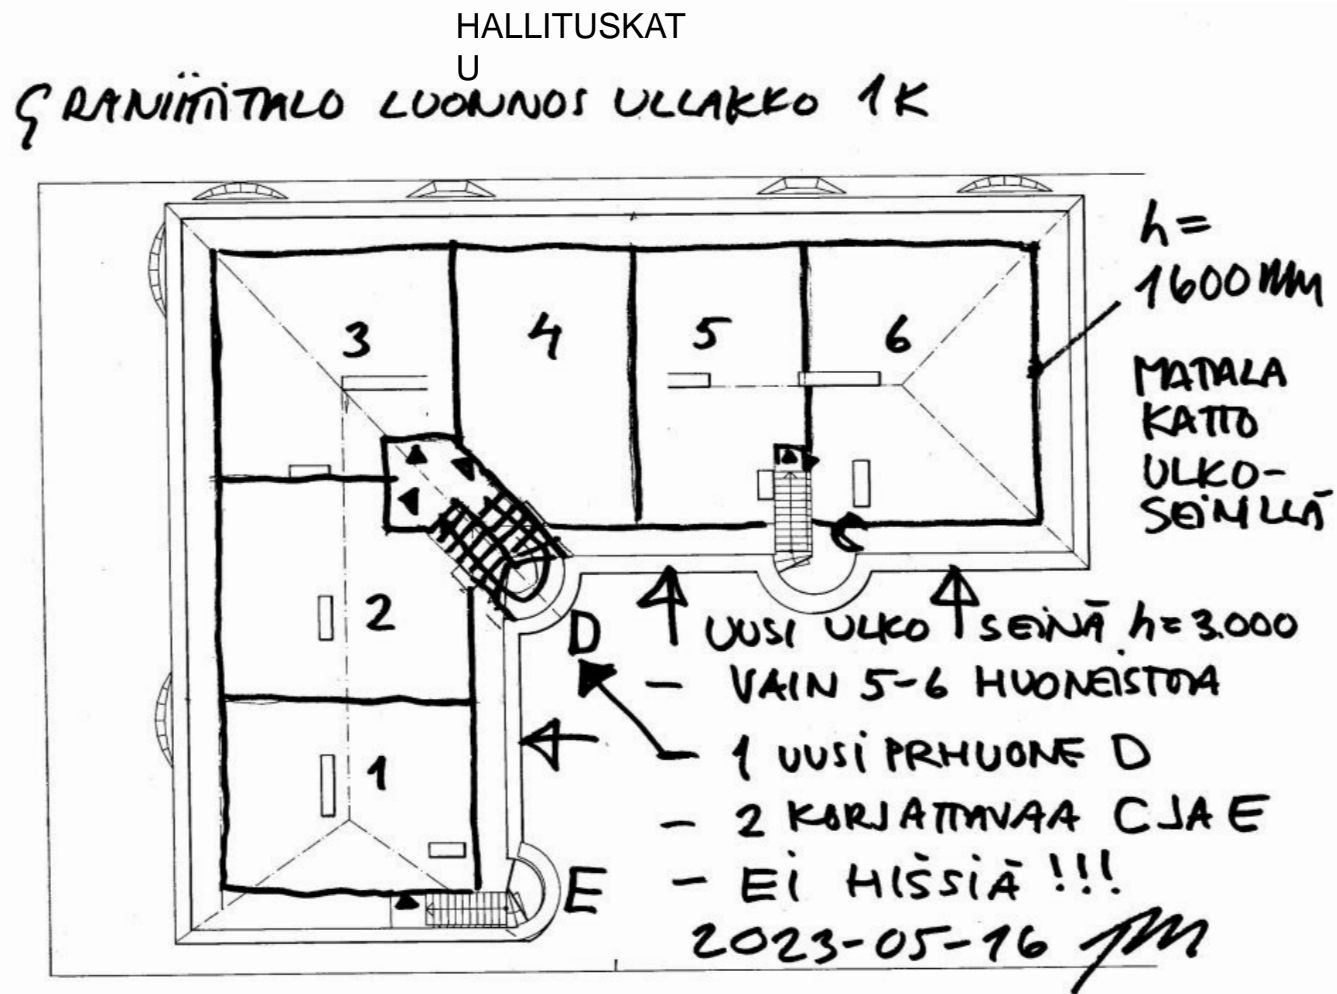 HALLITUSKAT
U
GRANIITTITALO LUONNOS ULLAKKO 1K
h=
1600mm
3
4
5
6
MATALA
KATTO
ULKO-
SEINILLÄ
C
2
D
UUSI ULKO SEINÄ h=3.000
- VAIN 5-6 HUONEISTOA
1
- 1 UUSI PRHUONE D
- 2 KORJATTAVAA C JA E
E
- EI HISSIÄ !!!
2023-05-16